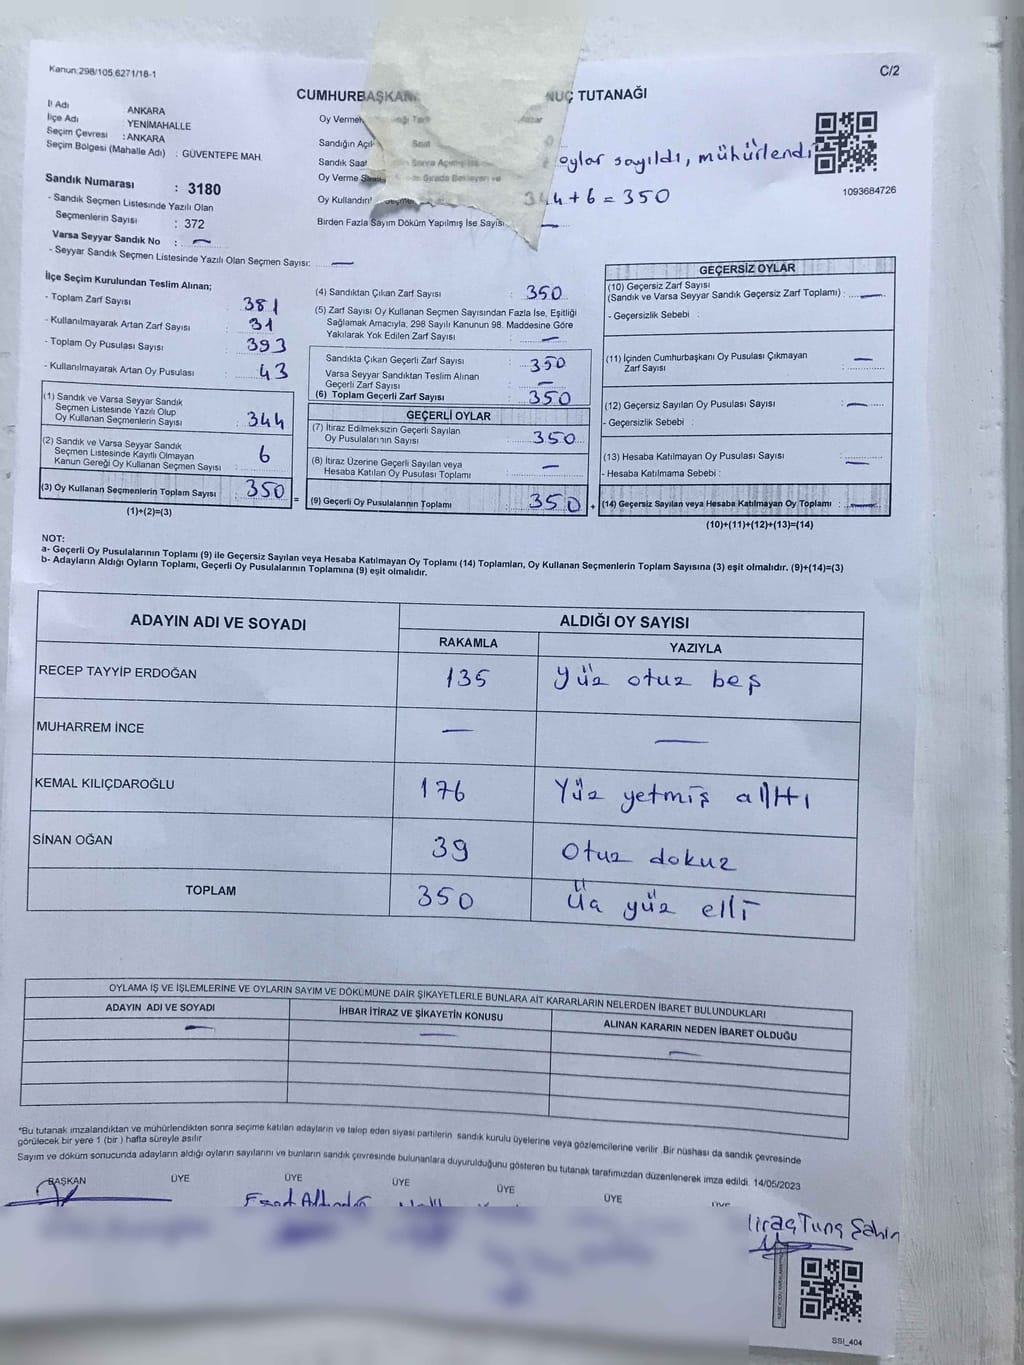 Kanun:298/105,6271/18-1
C/2
CUMHURBAŞKANI NUÇ TUTANAĞI
İl Adı ANKARA
İlçe Adı YENİMAHALLE
Seçim Çevresi : ANKARA
Seçim Bölgesi (Mahalle Adı) : GÜVENTEPE MAH.
Sandık Numarası : 3180
- Sandık Seçmen Listesinde Yazılı Olan
Seçmenlerin Sayısı : 372
Varsa Seyyar Sandık No : —
- Seyyar Sandık Seçmen Listesinde Yazılı Olan Seçmen Sayısı: —
Oy Vermen
Sandığın Açıl Saat
Sandık Saat
Oy Verme
Oy Kullandır
Birden Fazla Sayım Döküm Yapılmış İse Sayısı —
oylar sayıldı, mühürlendi
344+6=350
1093684726
İlçe Seçim Kurulundan Teslim Alınan;
- Toplam Zarf Sayısı : 381
- Kullanılmayarak Artan Zarf Sayısı : 31
- Toplam Oy Pusulası Sayısı : 393
- Kullanılmayarak Artan Oy Pusulası : 43
(1) Sandık ve Varsa Seyyar Sandık
Seçmen Listesinde Yazılı Olup
Oy Kullanan Seçmenlerin Sayısı : 344
(2) Sandık ve Varsa Seyyar Sandık
Seçmen Listesinde Kayıtlı Olmayan
Kanun Gereği Oy Kullanan Seçmen Sayısı : 6
(3) Oy Kullanan Seçmenlerin Toplam Sayısı : 350 =
(1)+(2)=(3)
(4) Sandıktan Çıkan Zarf Sayısı : 350
(5) Zarf Sayısı Oy Kullanan Seçmen Sayısından Fazla İse, Eşitliği
Sağlamak Amacıyla, 298 Sayılı Kanunun 98. Maddesine Göre
Yakılarak Yok Edilen Zarf Sayısı : —
Sandıkta Çıkan Geçerli Zarf Sayısı : 350
Varsa Seyyar Sandıktan Teslim Alınan
Geçerli Zarf Sayısı : —
(6) Toplam Geçerli Zarf Sayısı : 350
GEÇERLİ OYLAR
(7) İtiraz Edilmeksizin Geçerli Sayılan
Oy Pusulalarının Sayısı : 350
(8) İtiraz Üzerine Geçerli Sayılan veya
Hesaba Katılan Oy Pusulası Toplamı : —
(9) Geçerli Oy Pusulalarının Toplamı : 350 +
GEÇERSİZ OYLAR
(10) Geçersiz Zarf Sayısı
(Sandık ve Varsa Seyyar Sandık Geçersiz Zarf Toplamı) : —
- Geçersizlik Sebebi :
(11) İçinden Cumhurbaşkanı Oy Pusulası Çıkmayan
Zarf Sayısı : —
(12) Geçersiz Sayılan Oy Pusulası Sayısı : —
- Geçersizlik Sebebi :
(13) Hesaba Katılmayan Oy Pusulası Sayısı : —
- Hesaba Katılmama Sebebi :
(14) Geçersiz Sayılan veya Hesaba Katılmayan Oy Toplamı : —
(10)+(11)+(12)+(13)=(14)
NOT:
a- Geçerli Oy Pusulalarının Toplamı (9) ile Geçersiz Sayılan veya Hesaba Katılmayan Oy Toplamı (14) Toplamları, Oy Kullanan Seçmenlerin Toplam Sayısına (3) eşit olmalıdır. (9)+(14)=(3)
b- Adayların Aldığı Oyların Toplamı, Geçerli Oy Pusulalarının Toplamına (9) eşit olmalıdır.
ADAYIN ADI VE SOYADI ALDIĞI OY SAYISI
RAKAMLA YAZIYLA
RECEP TAYYİP ERDOĞAN 135 Yüz otuz beş
MUHARREM İNCE — —
KEMAL KILIÇDAROĞLU 176 Yüz yetmiş altı
SİNAN OĞAN 39 Otuz dokuz
TOPLAM 350 Üç yüz elli
OYLAMA İŞ VE İŞLEMLERİNE VE OYLARIN SAYIM VE DÖKÜMÜNE DAİR ŞİKAYETLERLE BUNLARA AİT KARARLARIN NELERDEN İBARET BULUNDUKLARI
ADAYIN ADI VE SOYADI İHBAR İTİRAZ VE ŞİKAYETİN KONUSU ALINAN KARARIN NEDEN İBARET OLDUĞU
— — —
*Bu tutanak imzalandıktan ve mühürlendikten sonra seçime katılan adayların ve talep eden siyasi partilerin sandık kurulu üyelerine veya gözlemcilerine verilir. Bir nüshası da sandık çevresinde
görülecek bir yere 1 (bir) hafta süreyle asılır
Sayım ve döküm sonucunda adayların aldığı oyların sayılarını ve bunların sandık çevresinde bulunanlara duyurulduğunu gösteren bu tutanak tarafımızdan düzenlenerek imza edildi. 14/05/2023
BAŞKAN ÜYE ÜYE ÜYE ÜYE ÜYE ÜYE
Tunç Şahin
SSI_404